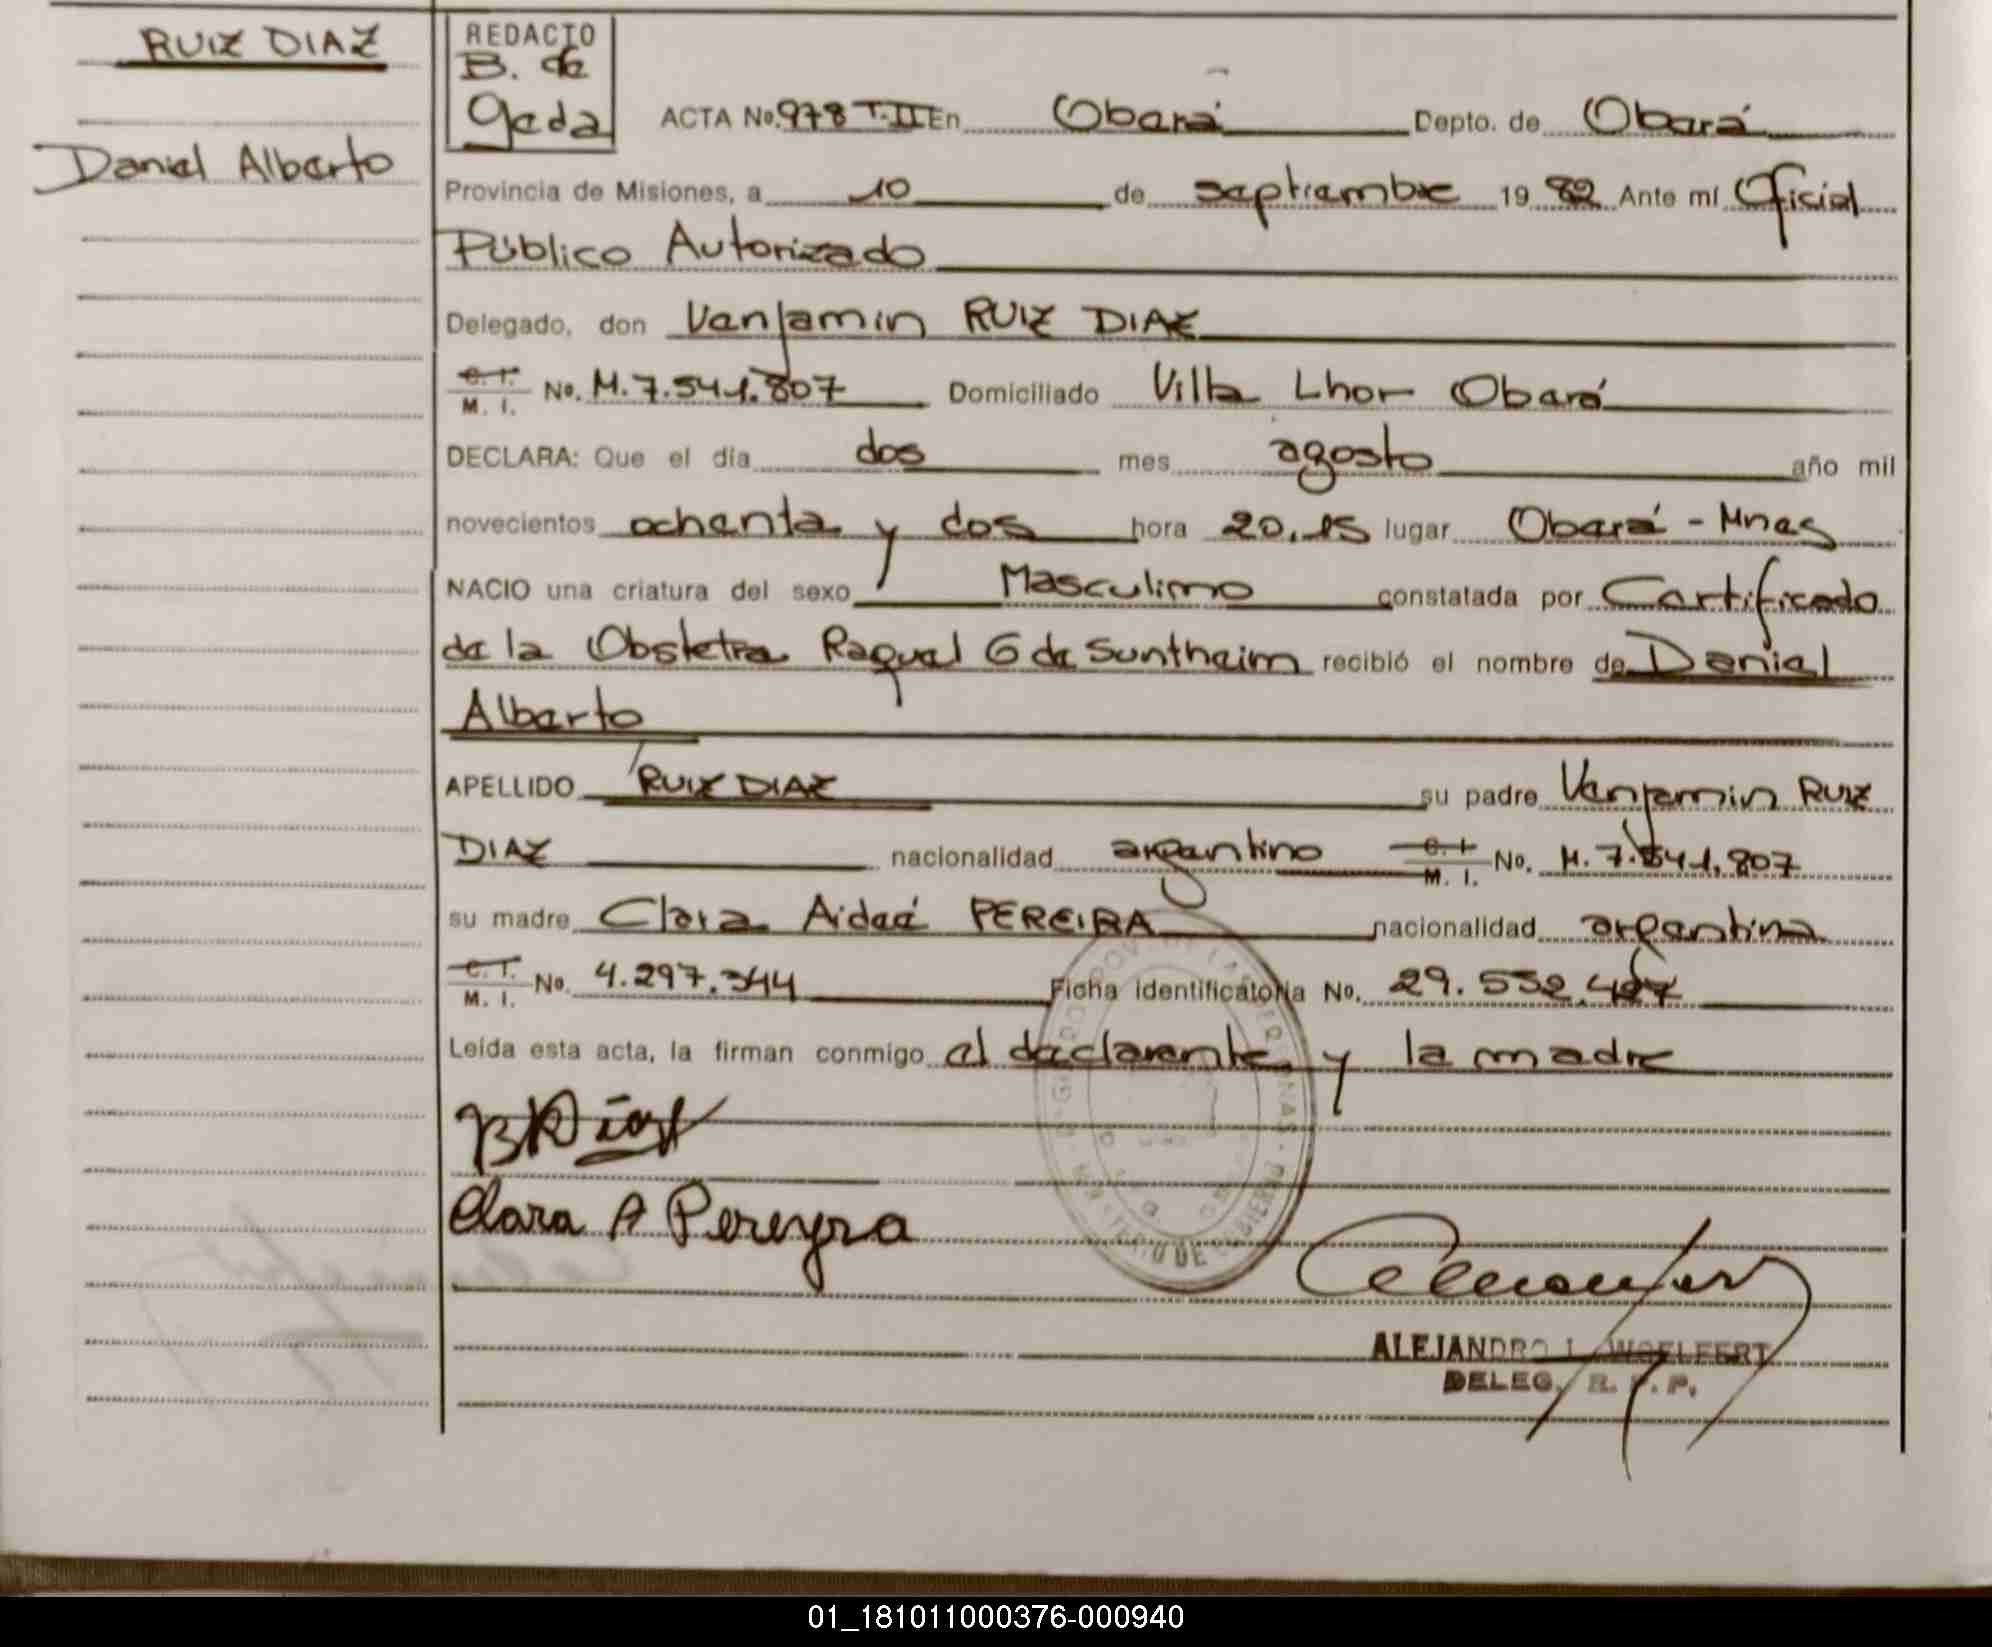 RUIZ DIAZ
Daniel Alberto
REDACTO
B. de
Geda
ACTA No. 978 T.II En Oberá Depto. de Oberá
Provincia de Misiones, a 10 de septiembre 19 82 Ante mí Oficial
Público Autorizado
Delegado, don Venjamin RUIZ DIAZ
C. I.
M. I. No. M.7.541.807 Domiciliado Villa Lhor Oberá
DECLARA: Que el día dos mes agosto año mil
novecientos ochenta y dos hora 20.15 lugar Oberá - Mnes
NACIO una criatura del sexo Masculino constatada por Certificado
de la Obstetra Raquel G de Suntheim recibió el nombre de Daniel
Alberto
APELLIDO RUIZ DIAZ su padre Venjamin RUIZ
DIAZ nacionalidad argentino C. I.
M. I. No. M. 7.541.807
su madre Clara Aideé PEREIRA nacionalidad argentina
C. I.
M. I. No. 4.297.344 Ficha identificatoria No. 29.532.
Leída esta acta, la firman conmigo el declarante y la madre
Clara A Pereyra
ALEJANDRO L. WOELFERT
DELEG. R. P. P.
01_181011000376-000940